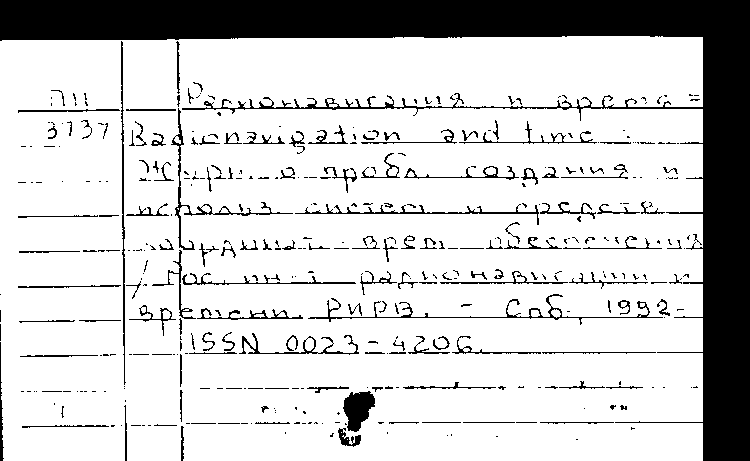 ПII Радионавигация и время =
3737 Radionavigation and time :
Журн. о пробл. создания и
использ. систем и средств
координат. врем. обеспечения
/ Рос. ин-т радионавигации и
времени. РИРВ. – Спб., 1992-
ISSN 0023-4206.